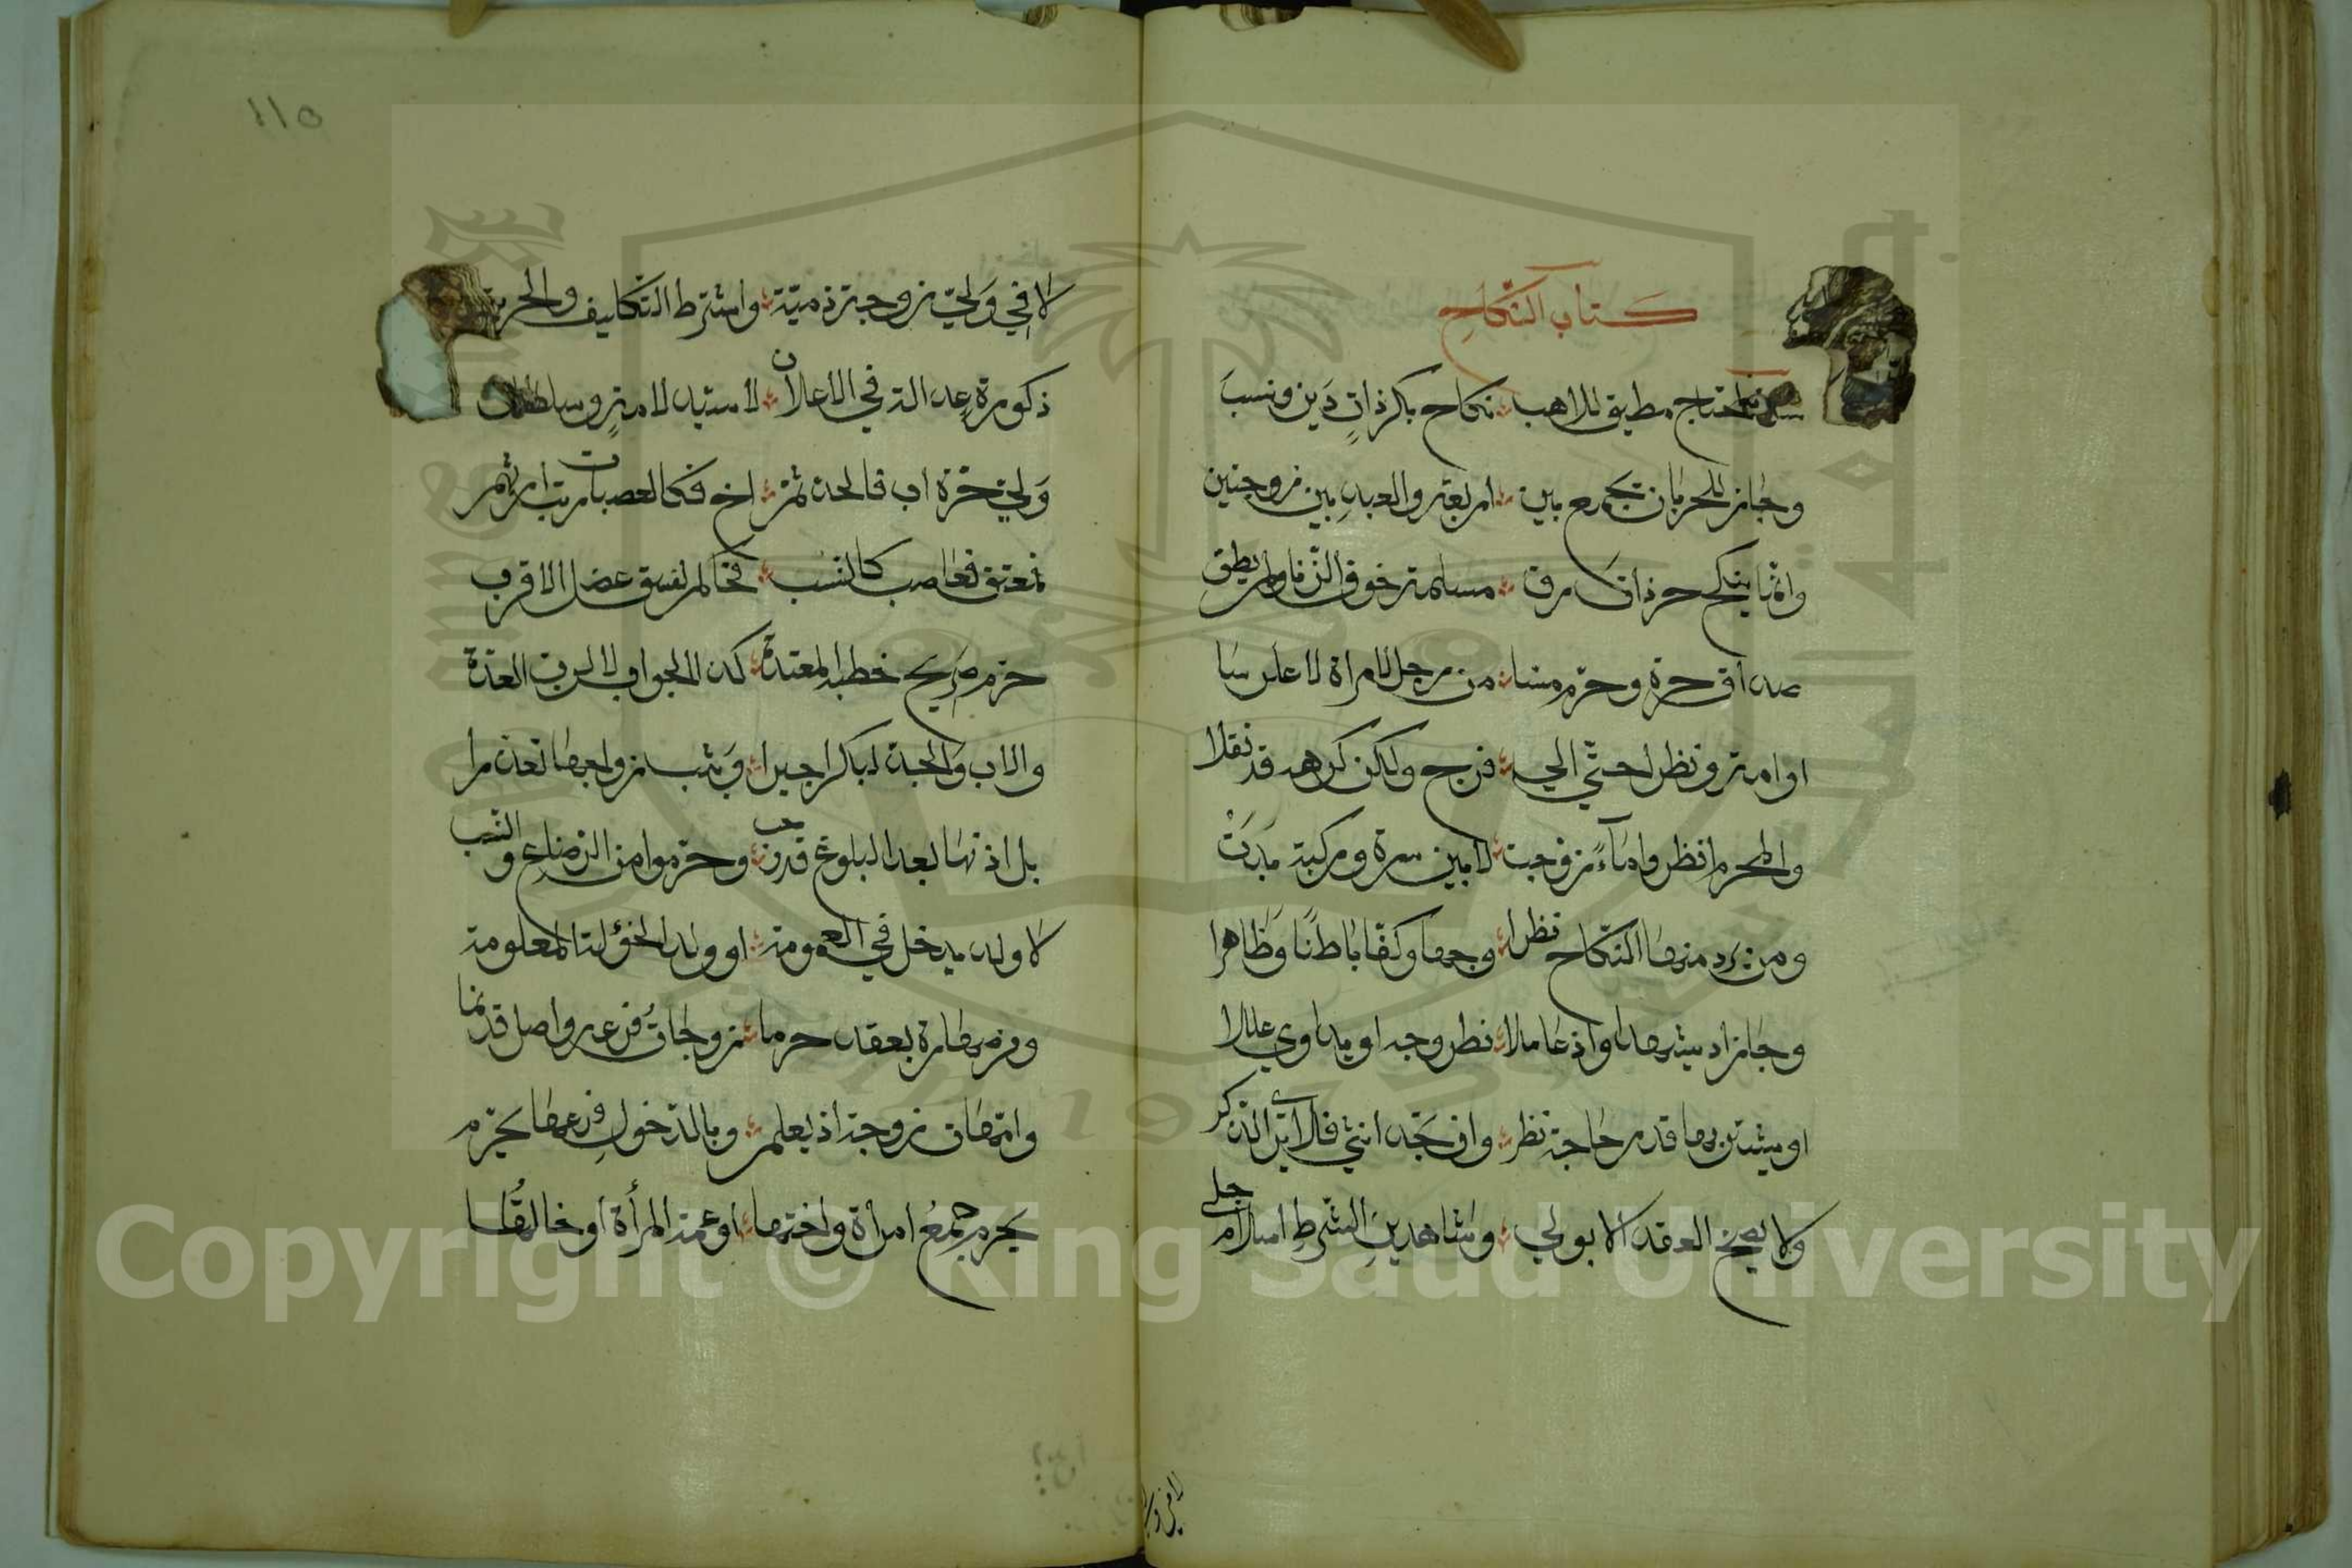 كتاب النكاح
سن لمحتاج مطيق للاهب نكاح بكر ذات دين ونسب
وجاز للحر بان يجمع بين اربعة والعبد بين زوجتين
وانما ينكح حر ذات رق مسلمة خوف الزنا ولم يطق
صداق حرة وحرم مسا من رجل لامراة لا عرسا
او امة ونظرا حتي الي فرج ولكن كرهه قد نقلا
والمحرم انظر واماء زوجت لا بين سرة وركبة بدت
ومن يرد منها النكاح نظرا وجها وكفا باطنا وظاهرا
وجاز ان يشهدا او اذ عاملا نظر وجه او يداوي عللا
او يشتريها قدر حاجة نظر وان تجد انثي فلا يرى الذكر
ولا يصح العقد الا بولي وشاهدين الشرط اسلام جلي
لا في ولي
لا في ولي زوجة ذمية واشترط التكليف والحرية
ذكورة عدالة في الاعلان لا سيد لامة وسلطان
ولي حرة اب فالجد ثم اخ فكالعصبات رتب ارثهم
فمعتق فعاصب كالنسب فحاكم لفسق عضل الاقرب
حرم صريح خطبة المعتدة كذا الجواب لا لرب العدة
والاب والجد لبكر اجبرا وثيب زواجها تعذرا
بل اذنها بعد البلوغ قد وجب وحرموا من الرضاع والنسب
لا ولد يدخل في العمومة او ولد الخؤلة المعلومة
ومن صهارة بعقد حرما زوجات فرعه واصل قد نما
وامهات زوجة اذ يعلم وبالدخول فرعها يحرم
يحرم جمع امرأة واختها او عمة المرأة او خالتها
١١٥
Copyright © King Saud University